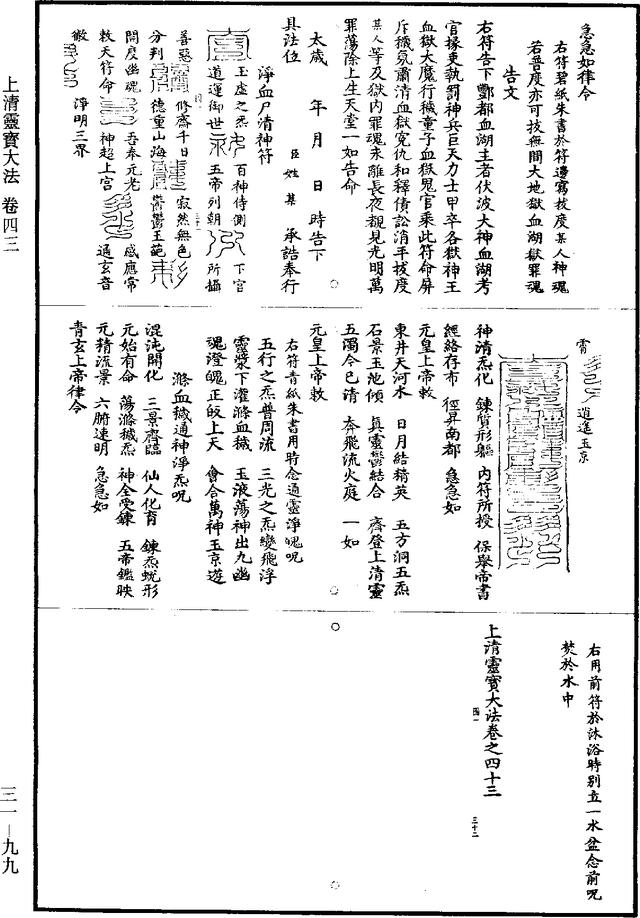 急急如律令
右符碧紙朱書於符邊寫拔度某人神魂
若普度亦可拔無間大地獄血湖獄罪魂
告文
右符告下酆都血湖主者伏波大神血湖考
官掾吏執罰神兵巨天力士甲卒各獄神王
血獄大魔行穢童子血獄鬼官乘此符命屏
斥穢氛肅清血獄冤仇和釋債訟消平拔度
某人等及獄內罪魂未離長夜覩見光明萬
罪蕩除上生天堂一如告命
太歲 年 月 日 時告下
具法位 臣 姓 某 承誥奉行
淨血尸清神符
玉虛之炁 百神侍側 下官
道運御世 五帝列朝 所攝
善惡 修齋千日 寂然無色
分判 德重山海 鬱鬱玉葩
開度幽魂 吾奉元老 感應常
敕天符命 神超上宮 通玄音
徹 淨明三界
霄 逍遙玉京
神清炁化 鍊質形軀 內符所授 保舉帝書
經絡存布 徑昇南都 急急如
元皇上帝敕
東井天河水 日月結精英 五方洞五炁
石景玉池傾 真靈鬱結合 齊登上清靈
五濁今已清 奔飛流火庭 一如
元皇上帝敕
右符青紙朱書用時念通靈淨魄呪
五行之炁普周流 三光之炁變飛浮
靈漿下灌滌血穢 玉液蕩神出九幽
魂澄魄正皈上天 會合萬神玉京遊
滌血穢通神淨炁呪
混沌開化 三景齊臨 仙人化育 鍊炁蛻形
元始有命 蕩滌穢炁 神全受鍊 五帝鑑映
元精流景 六腑速明 急急如
青玄上帝律令
右用前符於沐浴時別立一水盆念前呪
焚於水中
上清靈寶大法卷之四十三
上清靈寶大法 卷四三
三一—九九